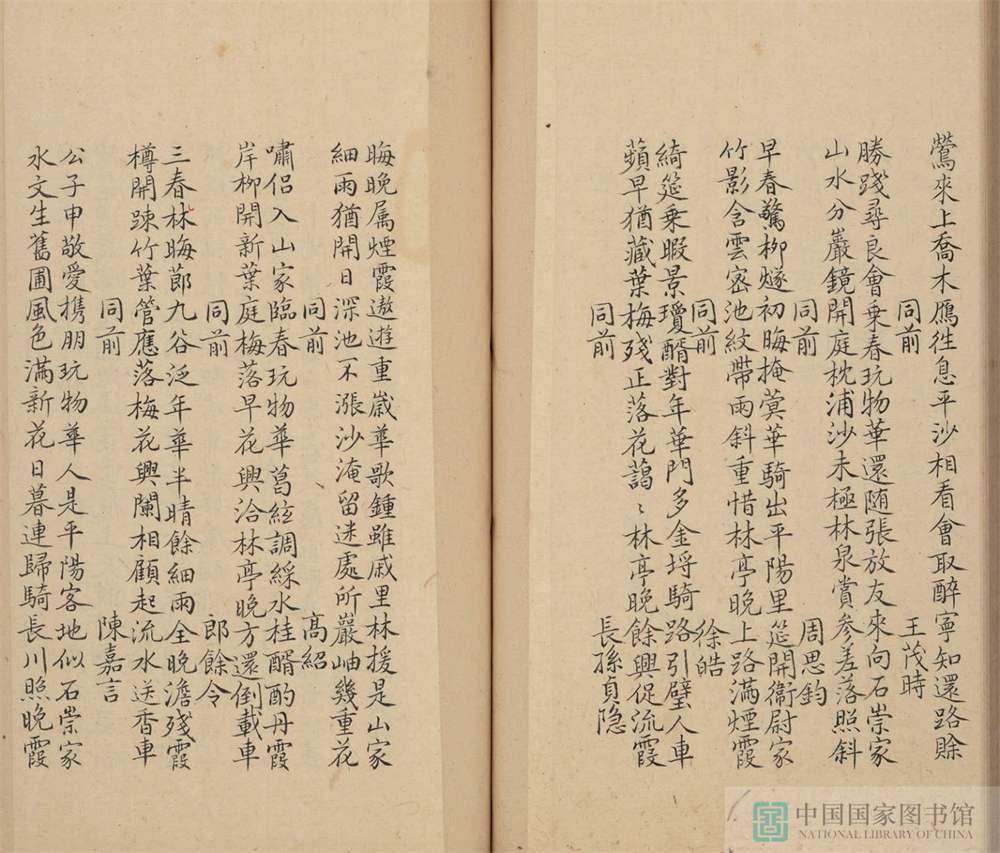 鶯來上喬木鴈徃息平沙相看會取醉寧知還路賒
同前 王茂時
勝踐尋良會乗春玩物華還随張放友來向石崇家
山水分巖鏡開庭枕浦沙未極林泉賞参差落照斜
同前 周思鈞
早春驚柳燧初晦掩蓂華騎出平陽里筵開衞尉家
竹影含雲宻池紋帶雨斜重惜林亭晚上路滿煙霞
同前 徐皓
綺筵乗暇景瓊醑對年華門多金埒騎路引璧人車
蘋早猶藏葉梅殘正落花藹〻林亭晚餘興促流霞
同前 長孫貞隐
晦晚属煙霞遨遊重歲華歌鍾雖戚里林援是山家
細雨猶開日深池不漲沙淹留迷處所巖岫幾重花
同前 高紹
嘯侣入山家臨春玩物華葛絃調綵水桂醑酌丹霞
岸柳開新葉庭梅落早花興洽林亭晚方還倒載車
同前 郎餘令
三春林晦莭九谷泛年華半晴餘細雨全晚澹殘霞
樽開踈竹葉管應落梅花興闌相顧起流水送香車
同前 陳嘉言
公子申敬愛携朋玩物華人是平陽客地似石崇家
水文生舊圃風色滿新花日暮連歸騎長川照晚霞
中国国家图书馆
NATIONAL LIBRARY OF CHINA